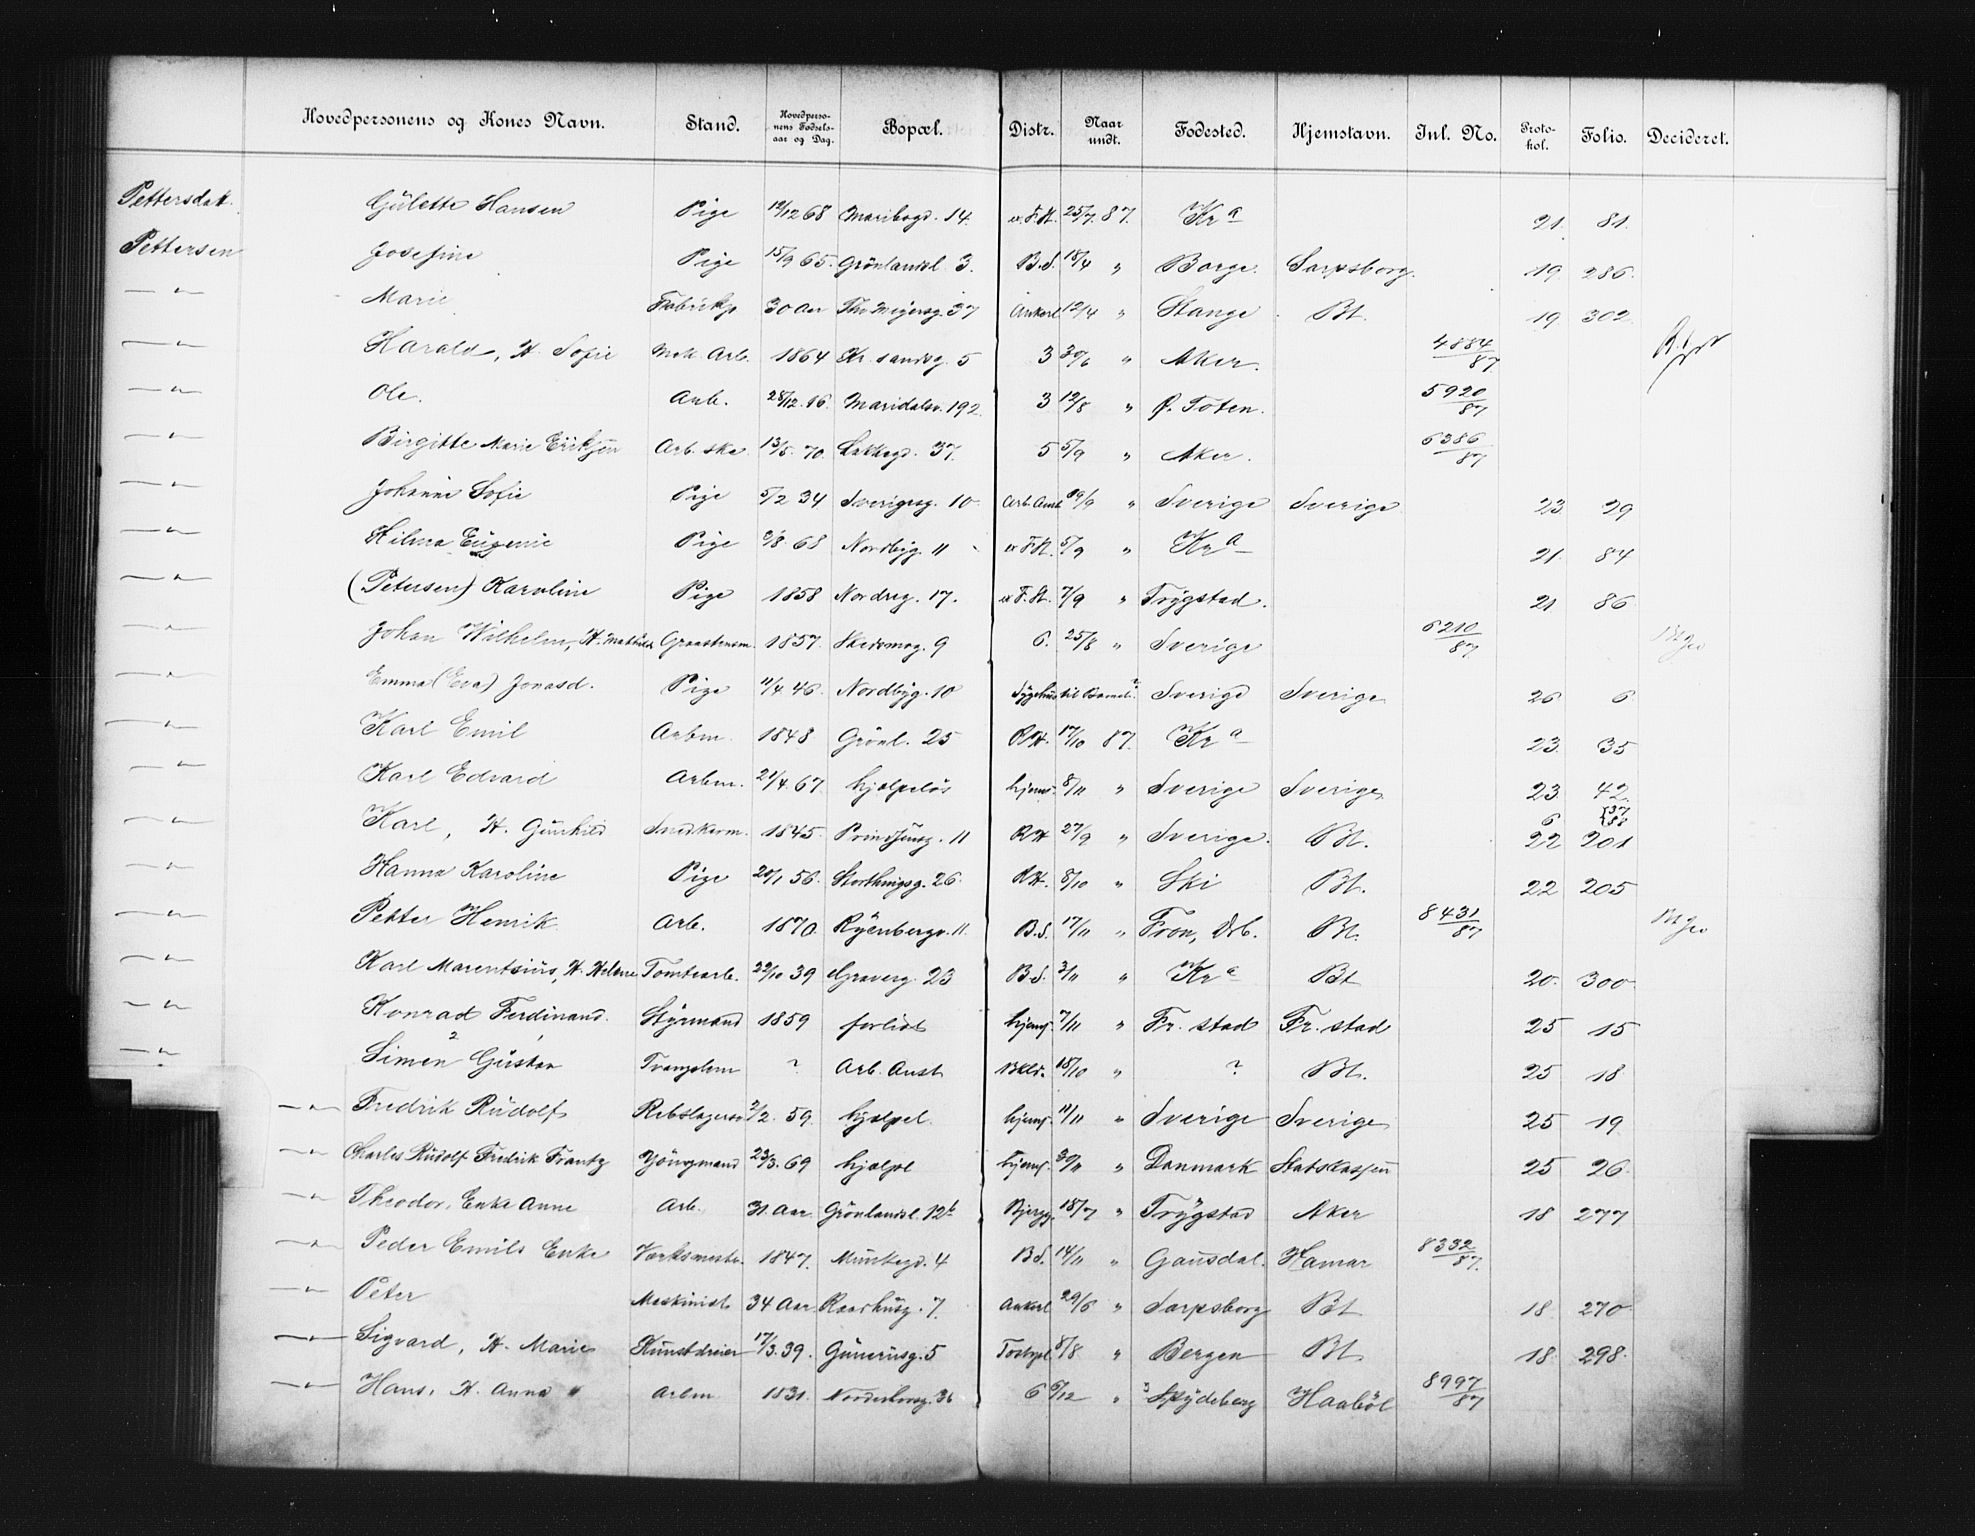 Hovedpersonens og Kones Navn. Stand. Hovedpersonens Fødselsaar og Dag. Bopæl. Distr. Naar undt. Fødested. Hjemstavn. Inl. No. Protokol. Folio. Decideret.
Pettersdat. Gulette Hansen Pige 12/12 68 Maribogd. 14. 25/7. 87. Kra 21. 81.
Pettersen Josefine Pige 15/9 65. Grönlandsl. 3. B.S. 18/4 " Borge. Sarpsborg. 19. 286.
—"— Marie Fabrikp 30 Aar Th. Meyersg. 37 Ankerl 12/4 " Stange Bt. 19 302.
—"— Harald, H. Sofie Mek. Arb. 1864 Kr. sandsg. 5 3 30/6 " Aker. 4884/87
—"— Ole. Arb. 28/12. 16. Maridalsv. 192. 3 12/8 " Ø. Toten. 5920/87
—"— Birgitte Marie Eriksen Arb. ske 13/5. 70. Lakkegd. 37. 5 5/9 " Aker. 6386/87
—"— Johanne Sofie Pige 5/2 34 Sverigesg. 10 Arb. Anst 19/9 " Sverige Sverige 23 29
—"— Hilma Eugenie Pige 68 Nordbyg. 11 5/9 " Kra 21. 84
—"— (Petersen) Karoline Pige 1858 Nordreg. 17. 7/9 " Trygstad. 21 86
—"— Johan Wilhelm, H. Mathilde 1857. Skedsmog. 9 6. 25/8 " Sverige 6210/87
—"— Emma (Eva) Jonasd. Pige 11/4. 46. Nordbyg. 10 Sverige Sverige 26 6.
—"— Karl Emil Arbm. 1848 Grönl. 25 RH. 17/10 87. Kra 23. 35
—"— Karl Edvard Arbm. 21/4. 67. hjælpeløs hjems. 8/11 " Sverige Sverige 23 42.
—"— Karl, H. Gunhild Snedkerm. 1845. Prindsensg. 11 RH 27/9 " Sverige. Bt. 6 22 201
—"— Hanna Karoline Pige 20/1 56. Storthingsg. 26. RH. 8/10 " Ski Bt. 22 205
—"— Petter Henrik Arb. 1870. Ryenbergv. 11. B.S. 17/11 " Fron, Drb. Bt. 8431/87
—"— Karl Marentsius, H. Helene Tomtearb. 22/10 39 Graverg. 23 B.S. 3/11 " Kra Bt 20. 300.
—"— Konrad Ferdinand. Styrmand 1859 forlist hjems. 7/11 " Fr. stad Fr. stad 25 15
—"— Simen Gustav Tvangslem ? Arb. Anst 18/10 " ? Bt. 25 18
—"— Fredrik Rudolf Rebslagersv 2/2. 59. hjælpel. hjems. 11/11 " Sverige Sverige 25 19.
—"— Charles Rudolf Fredrik Frantz Jöngmand 23/3. 69 hjælpl hjems. 30/11 " Danmark Statskassen 25 26.
—"— Theodor, Enke Anne Arb. 31. Aar Grönlandsl. 12b Bjergg. 18/7 " Trygstad Aker 18 277
—"— Peder Emils Enke Værksmestr. 1847. Munkegd. 4 B.S. 14/11 " Gausdal. Hamar 8332/87.
—"— Peter Maskinist 34 Aar Raadhusg. 7. Ankerl 29/6 " Sarpsborg Bt 18. 270
—"— Sigvard, H. Marie Kunstdreier 17/3. 39. Gunerusg. 5 8/8 " Bergen Bt. 18. 298.
—"— Hans, H. Anna Arbm 1831. 36 6 6/12 " Spydeberg Haaböl 8997/87